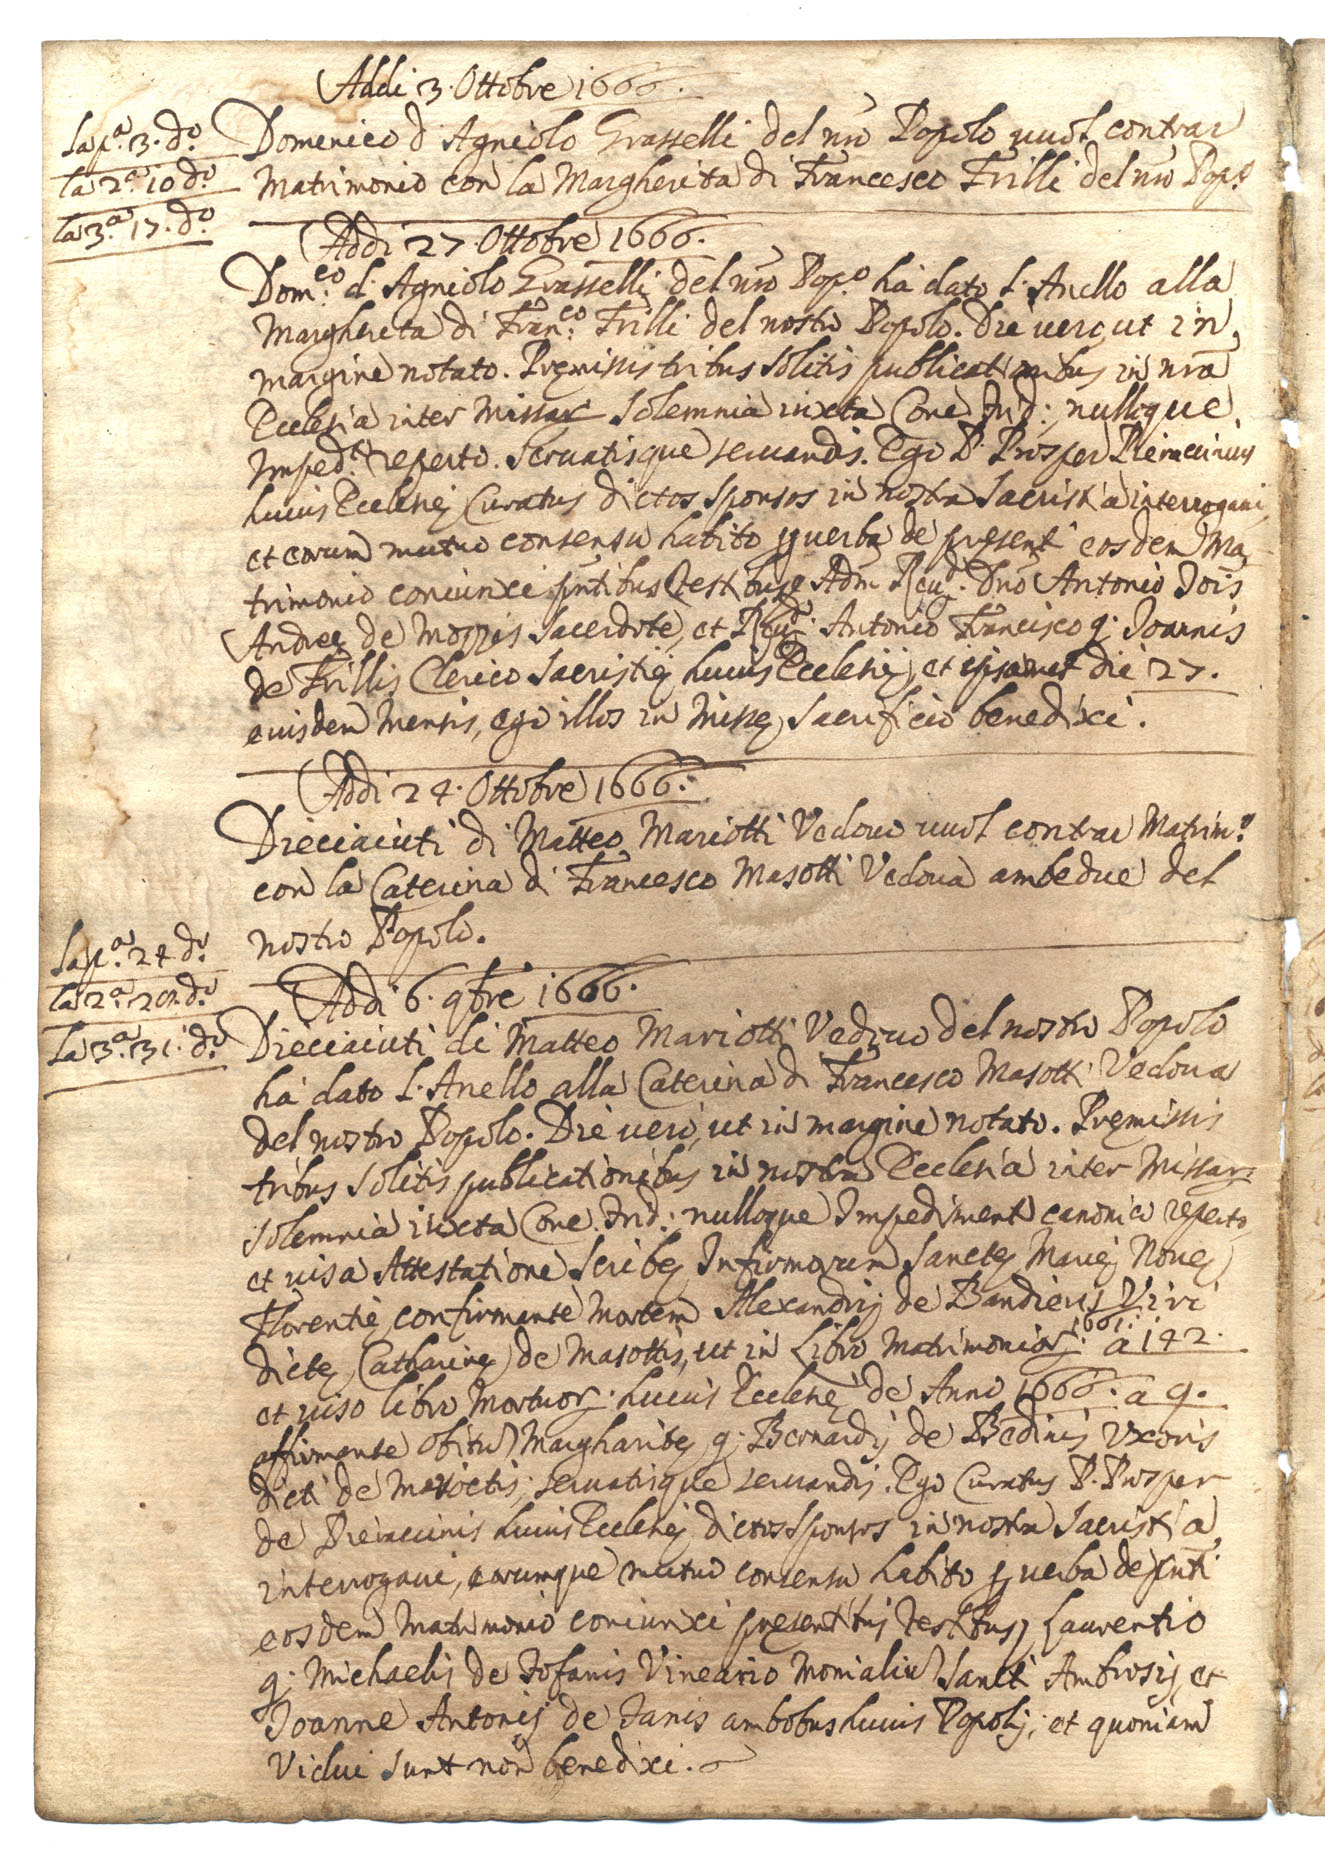 Addi 3. Ottobre 1666.
La p.a 3. d.o
la 2.a 10 d.o
la 3.a 17. d.o
Domenico d'Agniolo Grasselli del nro Popolo vuol contrar
Matrimonio con la Margherita di Francesco Frilli del nro Pop.o
Addi 27. Ottobre 1666.
Dom.co d'Agniolo Grasselli del nro Pop.o ha dato l'Anello alla
Margherita di Fran.co Frilli del nostro Popolo. Die vero, ut in
margine notato. Premissis tribus solitis publicationibus in nra
Ecclesia inter Missar solemnia iuxta Conc. Trid: nulloque
Imped.to reperto. Servatisque servandis. Ego P. Prosper Pieraccinius
huius Ecclesie Curatus dictos sponsos in nostra Sacristia interrogavi,
et eorum mutuo consensu habito p verba de presenti eosdem Ma
trimonio coniunxi pntibus testibus Adm Reud: Dno Antonio Jois
Andree de Mozzis Sacerdote, et Reud: Antonio Francisco q: Joannis
de Frillis Clerico Sacristie huius Ecclesie, et ipsamet die 27.
eiusdem mensis, ego illos in Misse sacrificio benedixi.
Addi 24. Ottobre 1666.
Dieciaiuti di Matteo Mariotti Vedovo vuol contrar Matrim.o
con la Caterina di Francesco Masotti Vedova ambedue del
nostro Popolo.
La p.a 24 d.o
la 2.a 28. d.o
la 3.a 31. d.o
Addi 6. 9bre 1666.
Dieciaiuti di Matteo Mariotti Vedovo del nostro Popolo
ha dato l'Anello alla Caterina di Francesco Masotti Vedova
del nostro Popolo. Die vero, ut in margine notato. Premissis
tribus solitis publicationibus in nostra Ecclesia inter Missar
solemnia iuxta Conc. Trid: nulloque Impedimento canonico reperto,
et visa Attestatione Scribe Infirmorum Sancte Marie Nove
Florentie confirmante mortem Alexandri de Bandieris Viri
dicte Catharine de Masottis, ut in Libro Matrimonior: 1661. a 142.
et viso libro Mortuor: huius Ecclesie de Anno 1666. a 9.
affirmante obitu Margharite q: Bernardi de Bedinis Uxoris
dicti de Mariottis; servatisque servandis. Ego Curatus P. Prosper
de Pieraccinis huius Ecclesie dictos sponsos in nostra Sacristia
interrogavi, eorumque mutuo consensu habito p verba de pnti
eosdem Matrimonio coniunxi presentibus testibus Laurentio
q: Michaelis de Tofanis Vineario Monialiu Sancti Ambrosij, et
Joanne Antonij de Janis ambobus huius Popoli; et quoniam
Vidui sunt non benedixi.